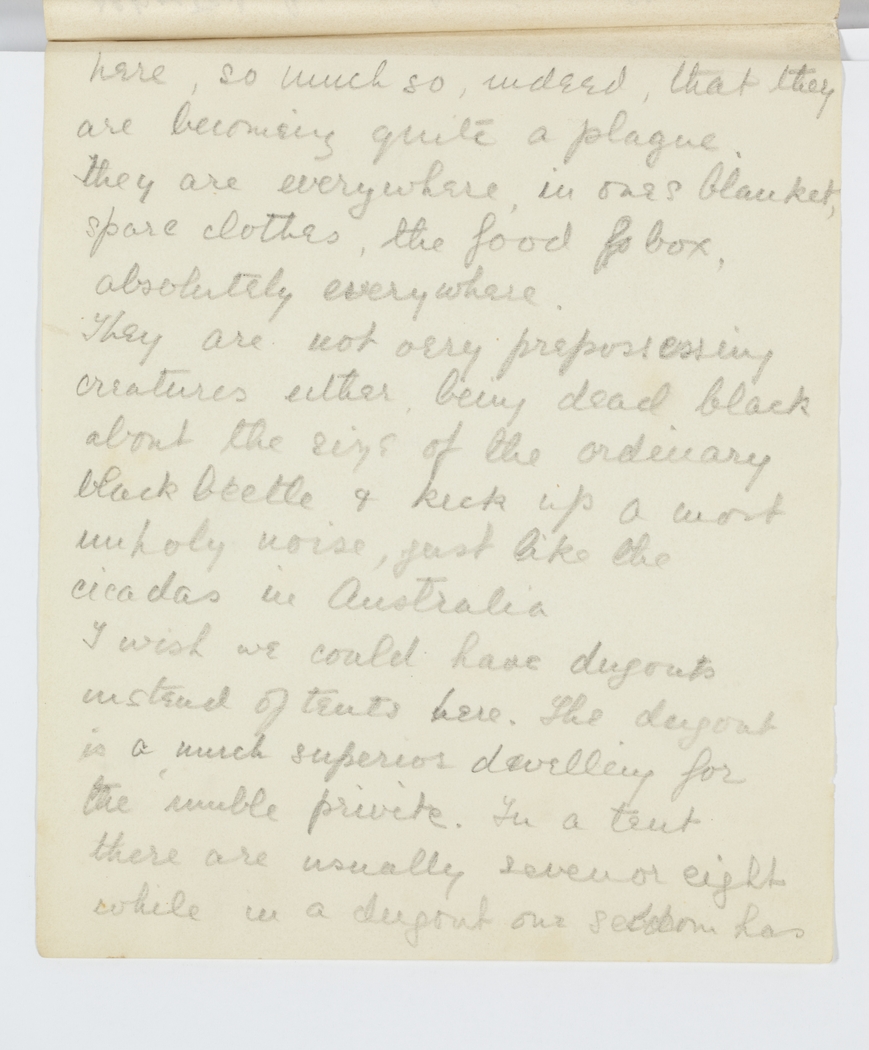 here, so much so, indeed, that they
are becoming quite a plague.
They are everywhere, in ones blanket,
spare clothes, the food box,
absolutely everywhere.
They are not very prepossessing
creatures either, being dead black
about the size of the ordinary
black beetle & kick up a most
unholy noise, just like the
cicadas in Australia
I wish we could have dugouts
instead of tents here. The dugout
is a much superior dwelling for
the umble privite. In a tent
there are usually seven or eight
while in a dugout one seldom has